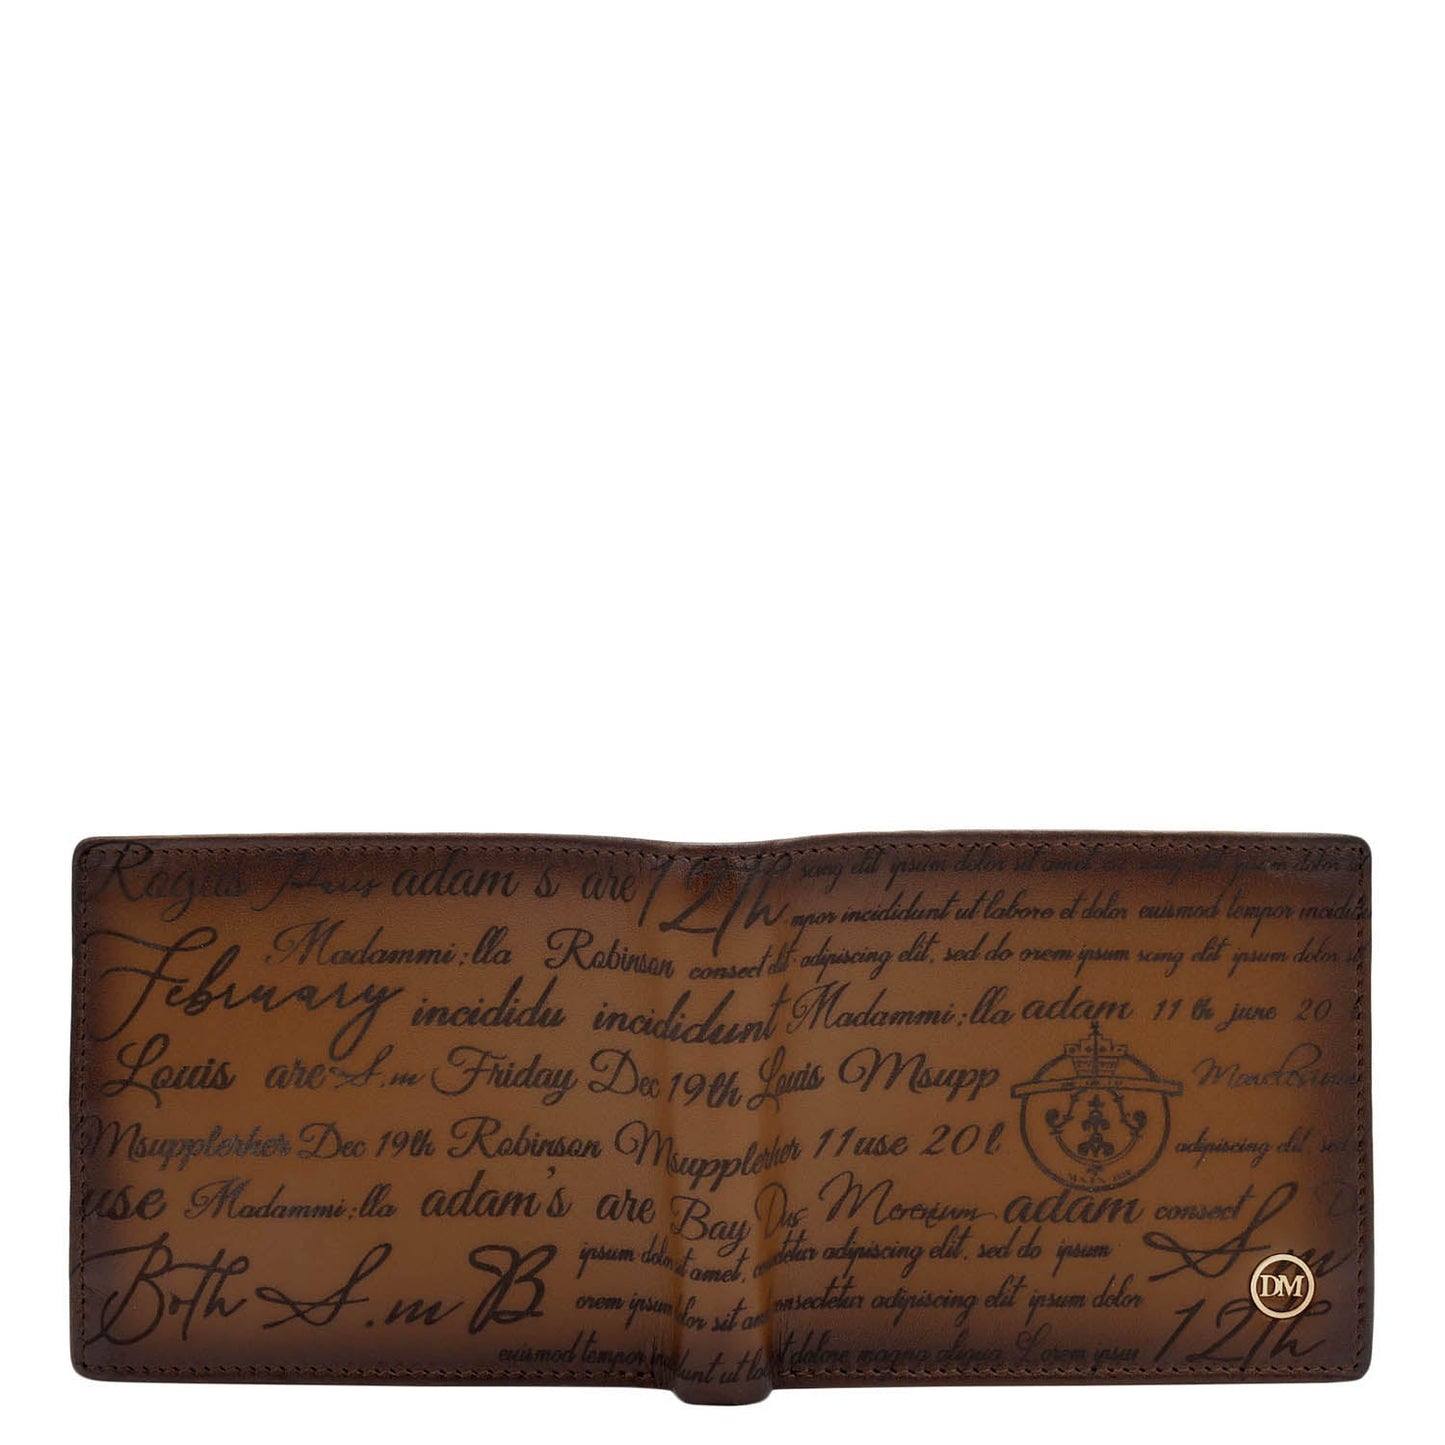 Ragus Paris adam's are 12th scing elit ipsum dolor sit amet
mpor incididunt ut labore et dolor euismod tempor incidid
Madammi;lla Robinson consect elit adipiscing elit, sed do orem ipsum scing elit ipsum dolor sit
February incididu incididunt Madammi;lla adam 11 th june 20
Louis are S.m Friday Dec 19th Louis Msupp
Msupplerher Dec 19th Robinson Msupplerher 11use 20l adipiscing elit, sed
use Madammi;lla adam's are Bay Dus Merenium adam consect D
ipsum dolor sit amet, consectetur adipiscing elit, sed do ipsum
Both S.m B S.m
orem ipsum dolor sit am consectetur adipiscing elit ipsum dolor DM
euismod tempor incididunt ut lab et dolore magna aliqua Lorem ipsum 12th